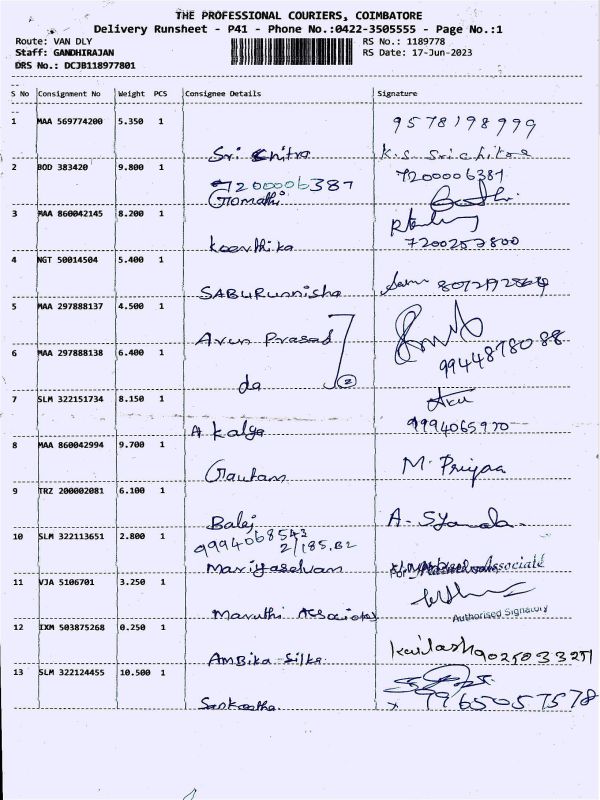 THE PROFESSIONAL COURIERS, COIMBATORE
Delivery Runsheet - P41 - Phone No.:0422-3505555 - Page No.:1
Route: VAN DLY
Staff: GANDHIRAJAN
DRS No.: DCJB118977801
RS No.: 1189778
RS Date: 17-Jun-2023
S No Consignment No Weight PCS Consignee Details Signature
1 MAA 569774200 5.350 1 9578198999
Sri Chitra K.S. Srichitra
2 BOD 383420 9.800 1 7200006387
7200006387
Gomathi
3 MAA 860042145 8.200 1
Keerthika 7200257800
4 NGT 50014504 5.400 1
SABURunnisha
5 MAA 297888137 4.500 1
Arun Prasad
6 MAA 297888138 6.400 1 9944878088
do 2
7 SLM 322151734 8.150 1
A Kalya 9994065970
8 MAA 860042994 9.700 1
Gautam M. Priyaa
9 TRZ 200002081 6.100 1
Balaj A. Syamala
10 SLM 322113651 2.800 1 9994068543
2/185,B2
Mariyaselvam
11 VJA 5106701 3.250 1
Maruthi Associates Authorised Signatory
12 IXM 503875268 0.250 1
Ambika Silks Kailash 9025033251
13 SLM 322124455 10.500 1
9965057578